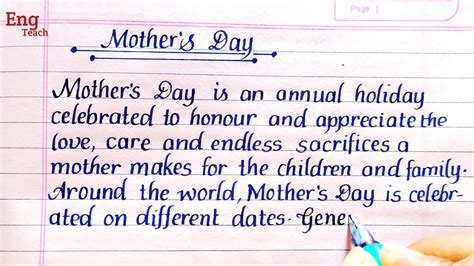 Eng
Teach
Page
Mother's Day
Mother's Day is an annual holiday
celebrated to honour and appreciate the
love, care and endless sacrifices a
mother makes for the children and family.
Around the world, Mother's Day is celebr-
ated on different dates. Gene